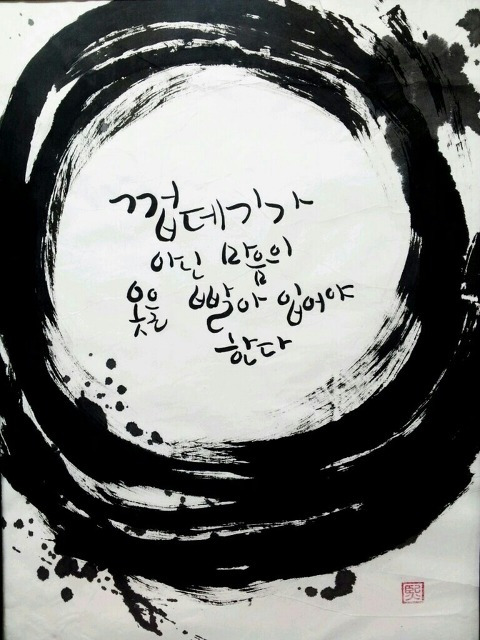 껍데기가
아닌 마음의
옷을 빨아 입어야
한다